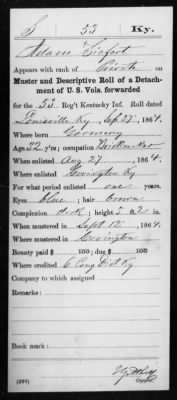 S 53 Ky.
Adam Siefert
Appears with rank of Private on
Muster and Descriptive Roll of a Detach-
ment of U. S. Vols. forwarded
for the 53 Reg't Kentucky Inf. Roll dated
Louisville Ky Sep. 27, 1864.
Where born Germany
Age 22 y'rs; occupation
When enlisted Aug 27, 1864.
Where enlisted Covington Ky
For what period enlisted one years.
Eyes blue; hair brown
Complexion ; height 5 ft. in.
When mustered in Sept. 12, 1864.
Where mustered in Covington
Bounty paid $ 100; due $ 100
Where credited 6 Cong Dist Ky
Company to which assigned
Remarks:
Book mark:
(339)
Copyist.